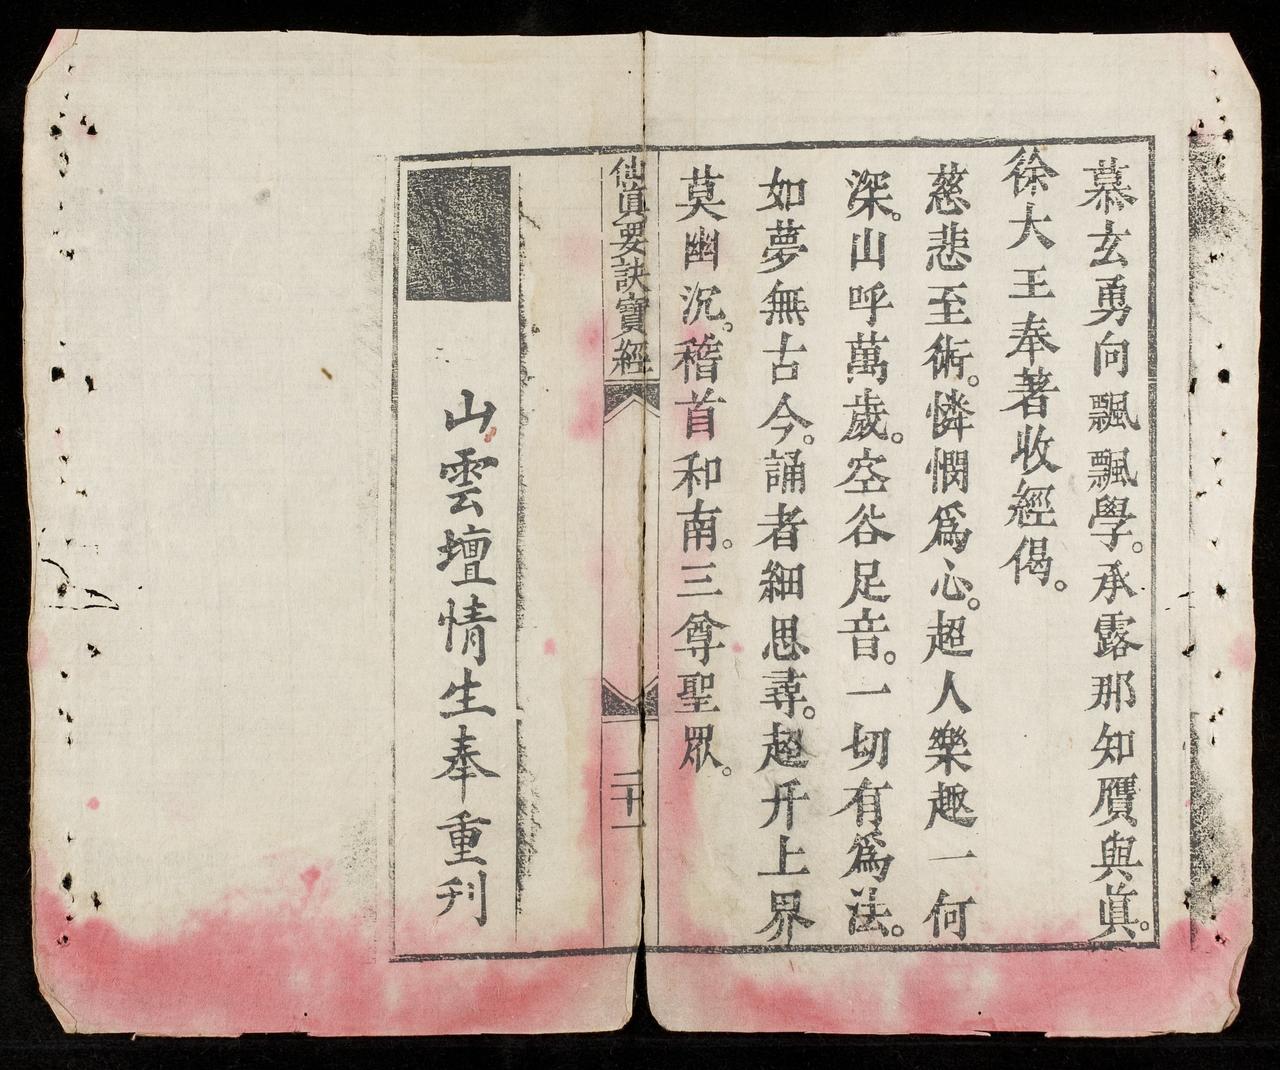 慕玄勇向飄飄學。承露那知贋與眞。
徐大王奉著收經偈。
慈悲至術。憐憫爲心。超人樂趣一何
深。山呼萬歲。空谷足音。一切有爲法。
如夢無古今。誦者細思尋。超升上界
莫幽沉。稽首和南。三尊聖眾。
仙眞要訣寶經
二十一
山雲壇情生奉重刊